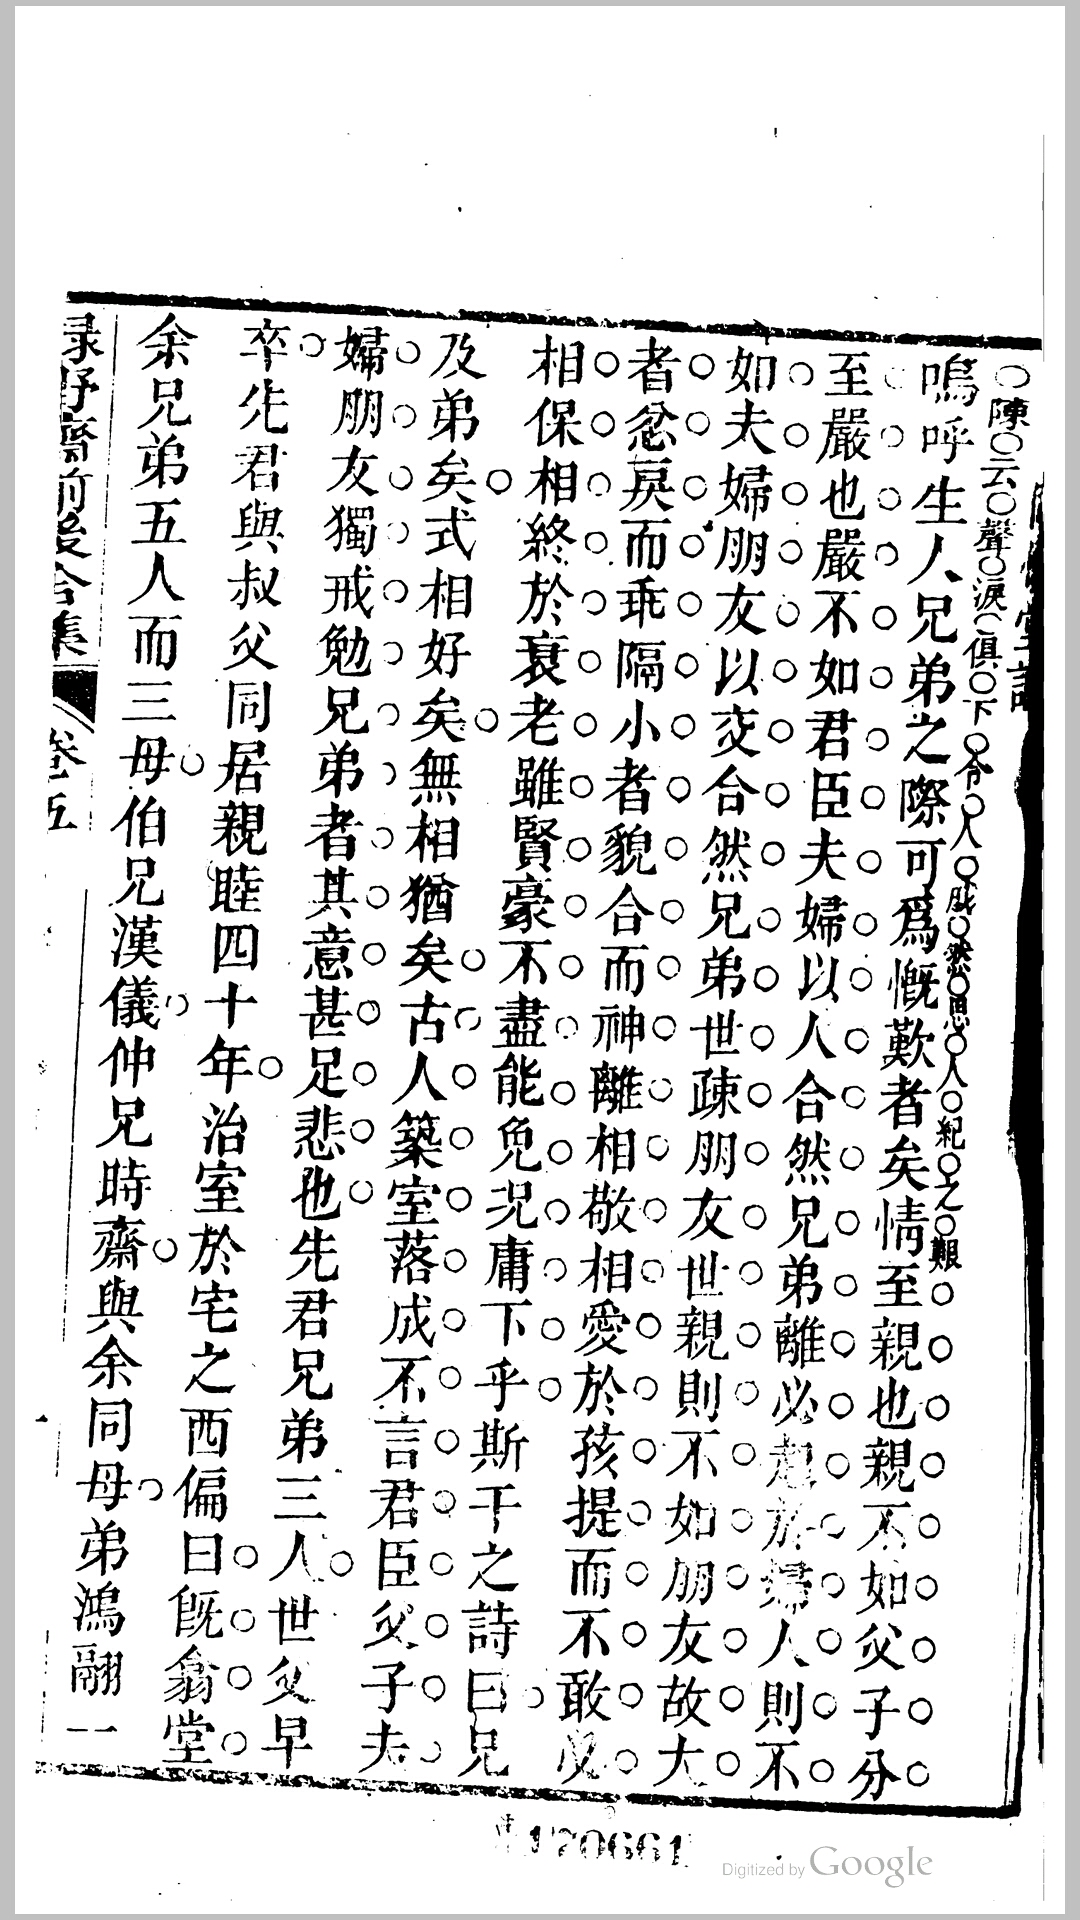 陳云聲淚俱下令人成然思人紀之艱
嗚呼生人兄弟之際可爲慨歎者矣情至親也親不如父子分
至嚴也嚴不如君臣夫婦以人合然兄弟離必起於婦人則不
如夫婦朋友以交合然兄弟世疎朋友世親則不如朋友故大
者忿戾而乖隔小者貌合而神離相敬相愛於孩提而不敢必
相保相終於衰老雖賢豪不盡能免况庸下乎斯干之詩曰兄
及弟矣式相好矣無相猶矣古人築室落成不言君臣父子夫
婦朋友獨戒勉兄弟者其意甚足悲也先君兄弟三人世父早
卒先君與叔父同居親睦四十年治室於宅之西偏曰旣翕堂
余兄弟五人而三母伯兄漢儀仲兄時齋與余同母弟鴻翮
綠野齋前後合集
卷五
一
170661
Digitized by Google